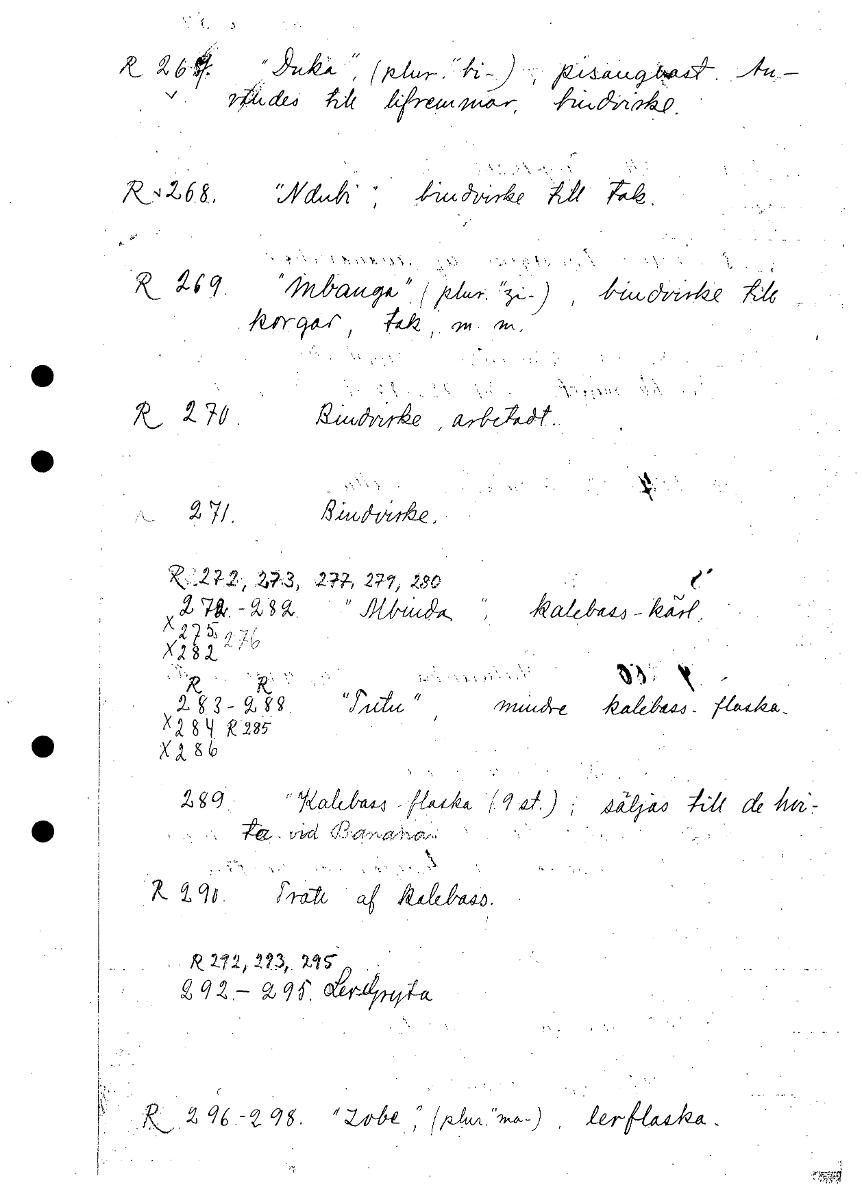 R 267. "Duka", (plur. "bi-"), pisangbast. An-
vändes till lifremmar, bindvirke.
R 268. "Ndubi", bindvirke till tak.
R 269. "Mbanga" (plur. "zi-), bindvirke till
korgar, tak, m. m.
R 270. Bindvirke, arbetadt.
271. Bindvirke.
R 272, 273, 277, 279, 280
272-282 "Mbinda", kalebass-kärl.
X 275, 276
X 282
R R
283-288 "Tutu", mindre kalebass-flaska.
X 284 R 285
X 286
289. "Kalebass-flaska (9 st.); säljas till de hvi-
ta vid Banana.
R 290. Tratt af kalebass.
R 292, 293, 295
292-295. Lergryta
R 296-298. "Zobe", (plur. "ma-), lerflaska.